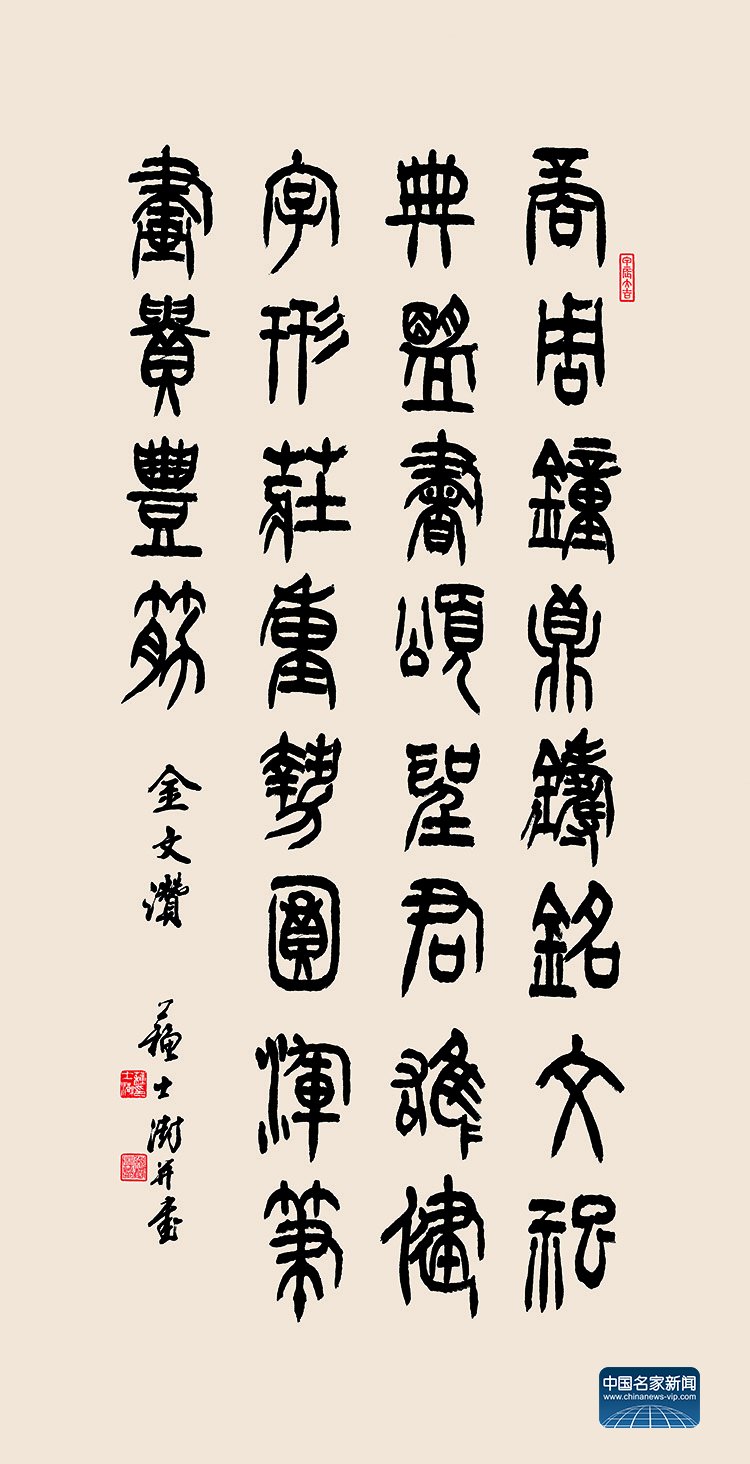 商周鐘鼎鑄銘文祀
典盟書頌聖君雄健
字形莊重勢圓渾筆
畫貫豐筋 金文讚 蘇士澍并書
中国名家新闻
www.chinanews-vip.com